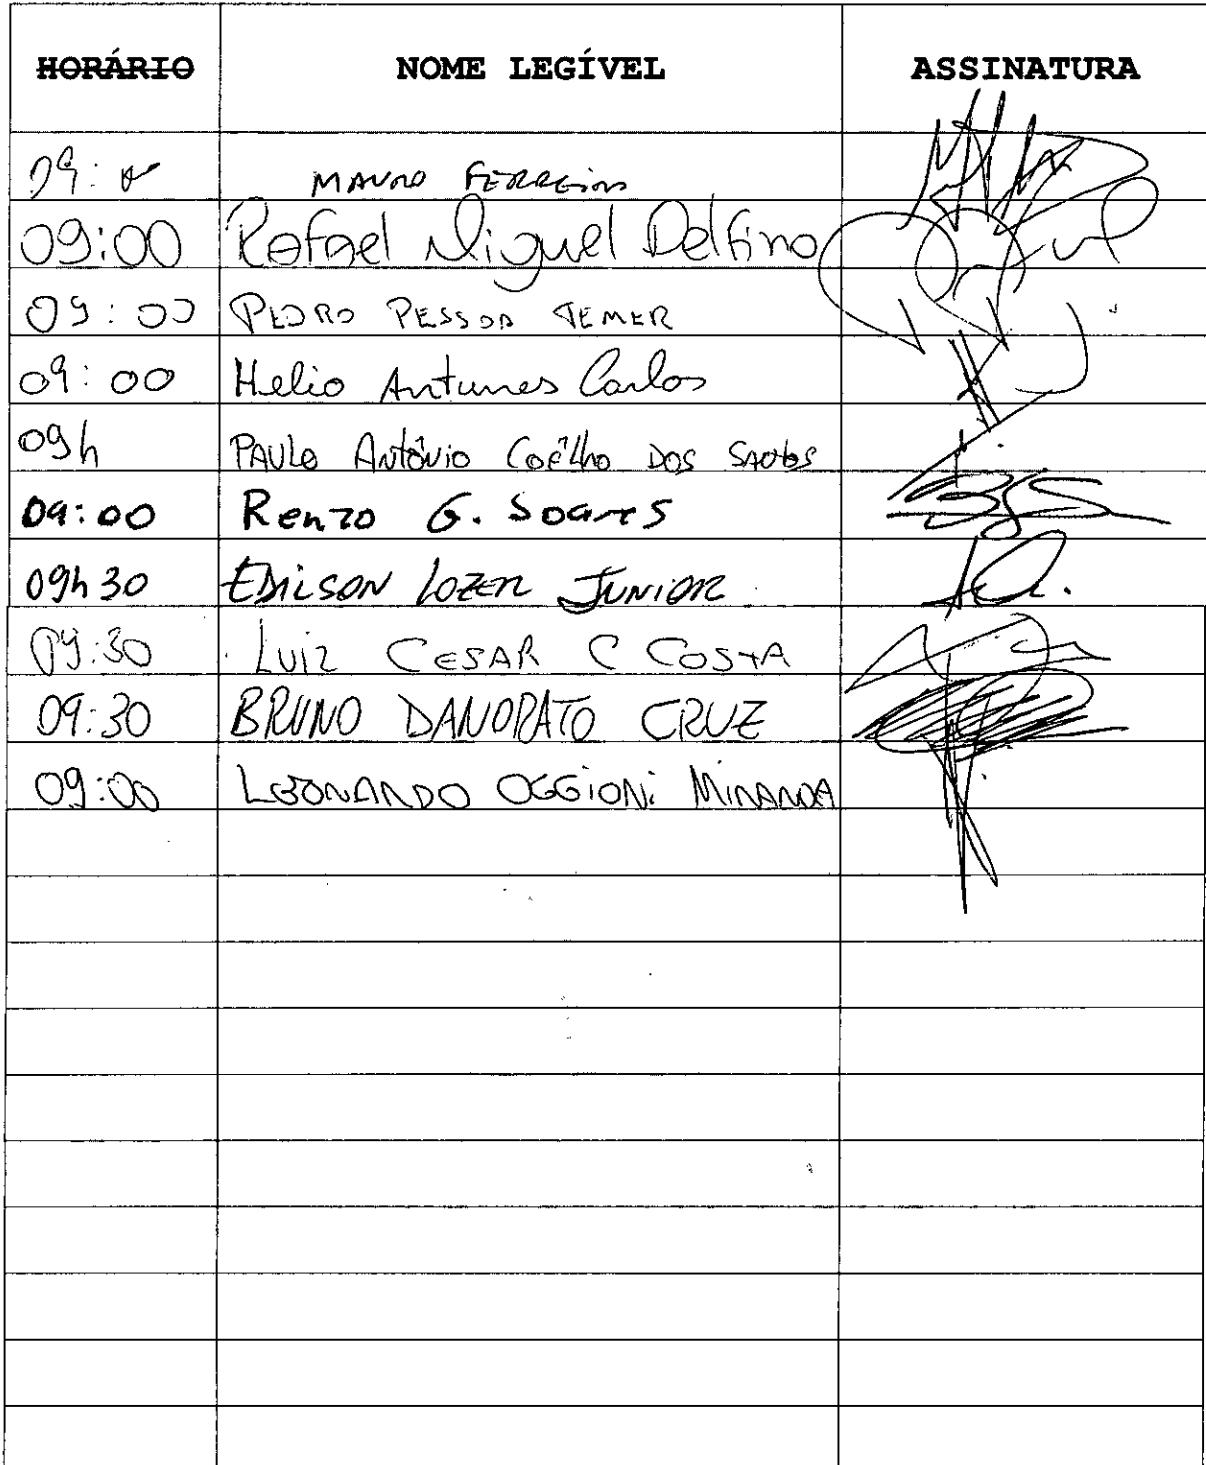 HORÁRIO NOME LEGÍVEL ASSINATURA
MAURO FERREIRA
09:00 Rafael Miguel Delfino
09:00 PEDRO PESSOA TEMER
09:00 Helio Antunes Carlos
09h PAULO Antônio Coêlho DOS SANTOS
09:00 Renzo G. Soares
09h30 EDILSON LOZER JUNIOR
09:30 LUIZ CESAR C COSTA
09:30 BRUNO DANORATO CRUZ
09:00 LEONARDO OGGIONI MIRANDA